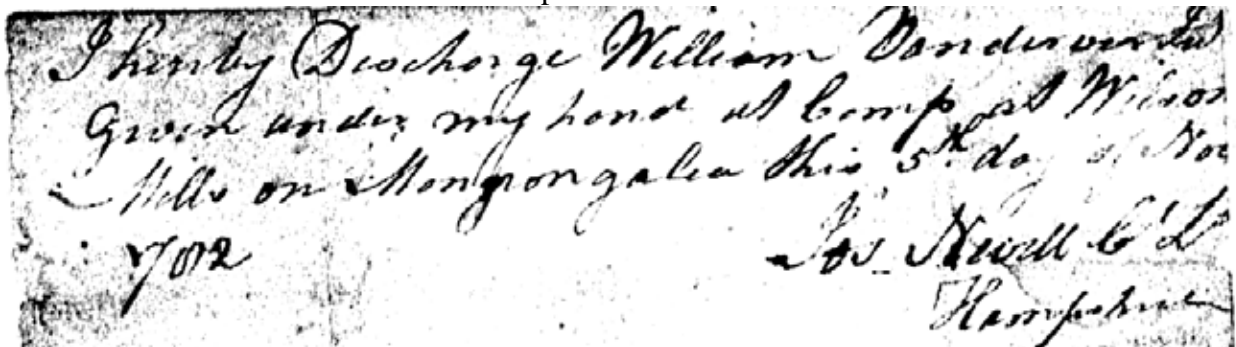 I hereby Discharge William Vandiver
Given under my hand at Camp at Wilson
Mills on Monongalea this 5th day of Nov
1782
Jos Nevill C L
Hampshire